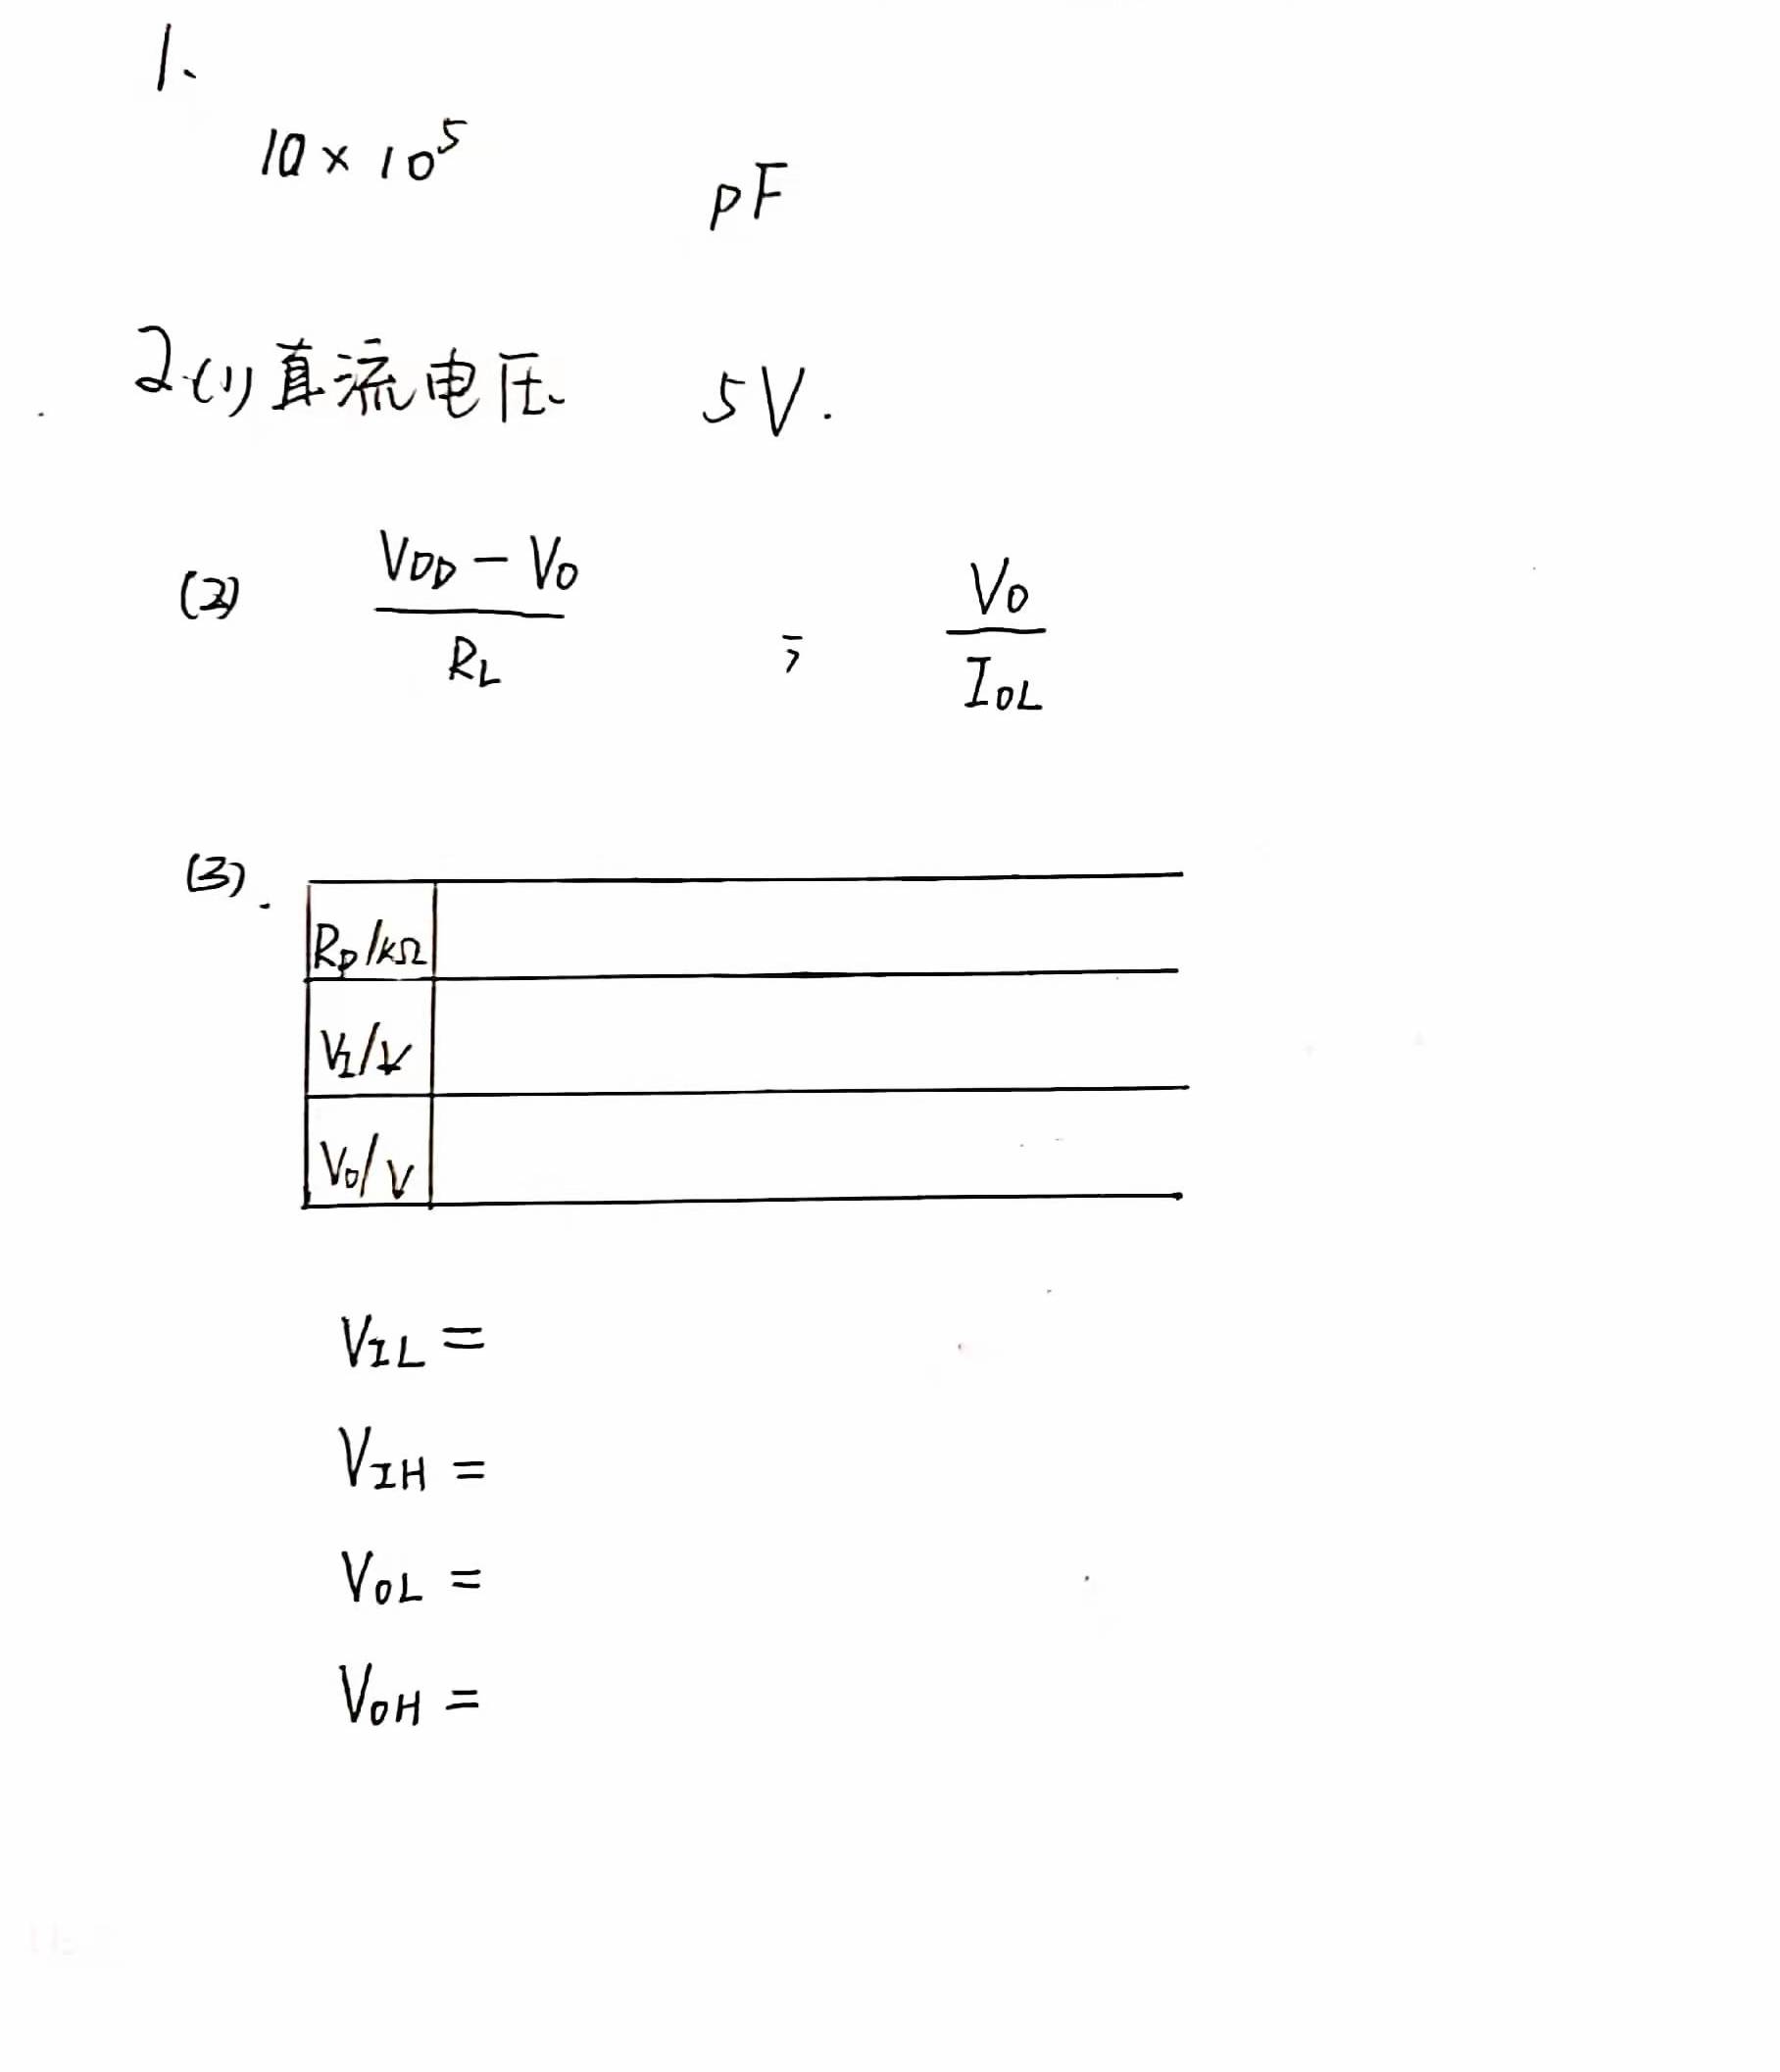 1.
10×10⁵ pF
2.(1) 直流电压 5V.
(2) (V_DD - V_O)/R_L ; V_O/I_OL
(3).
R_P/kΩ
V_I/V
V_O/V
V_IL =
V_IH =
V_OL =
V_OH =